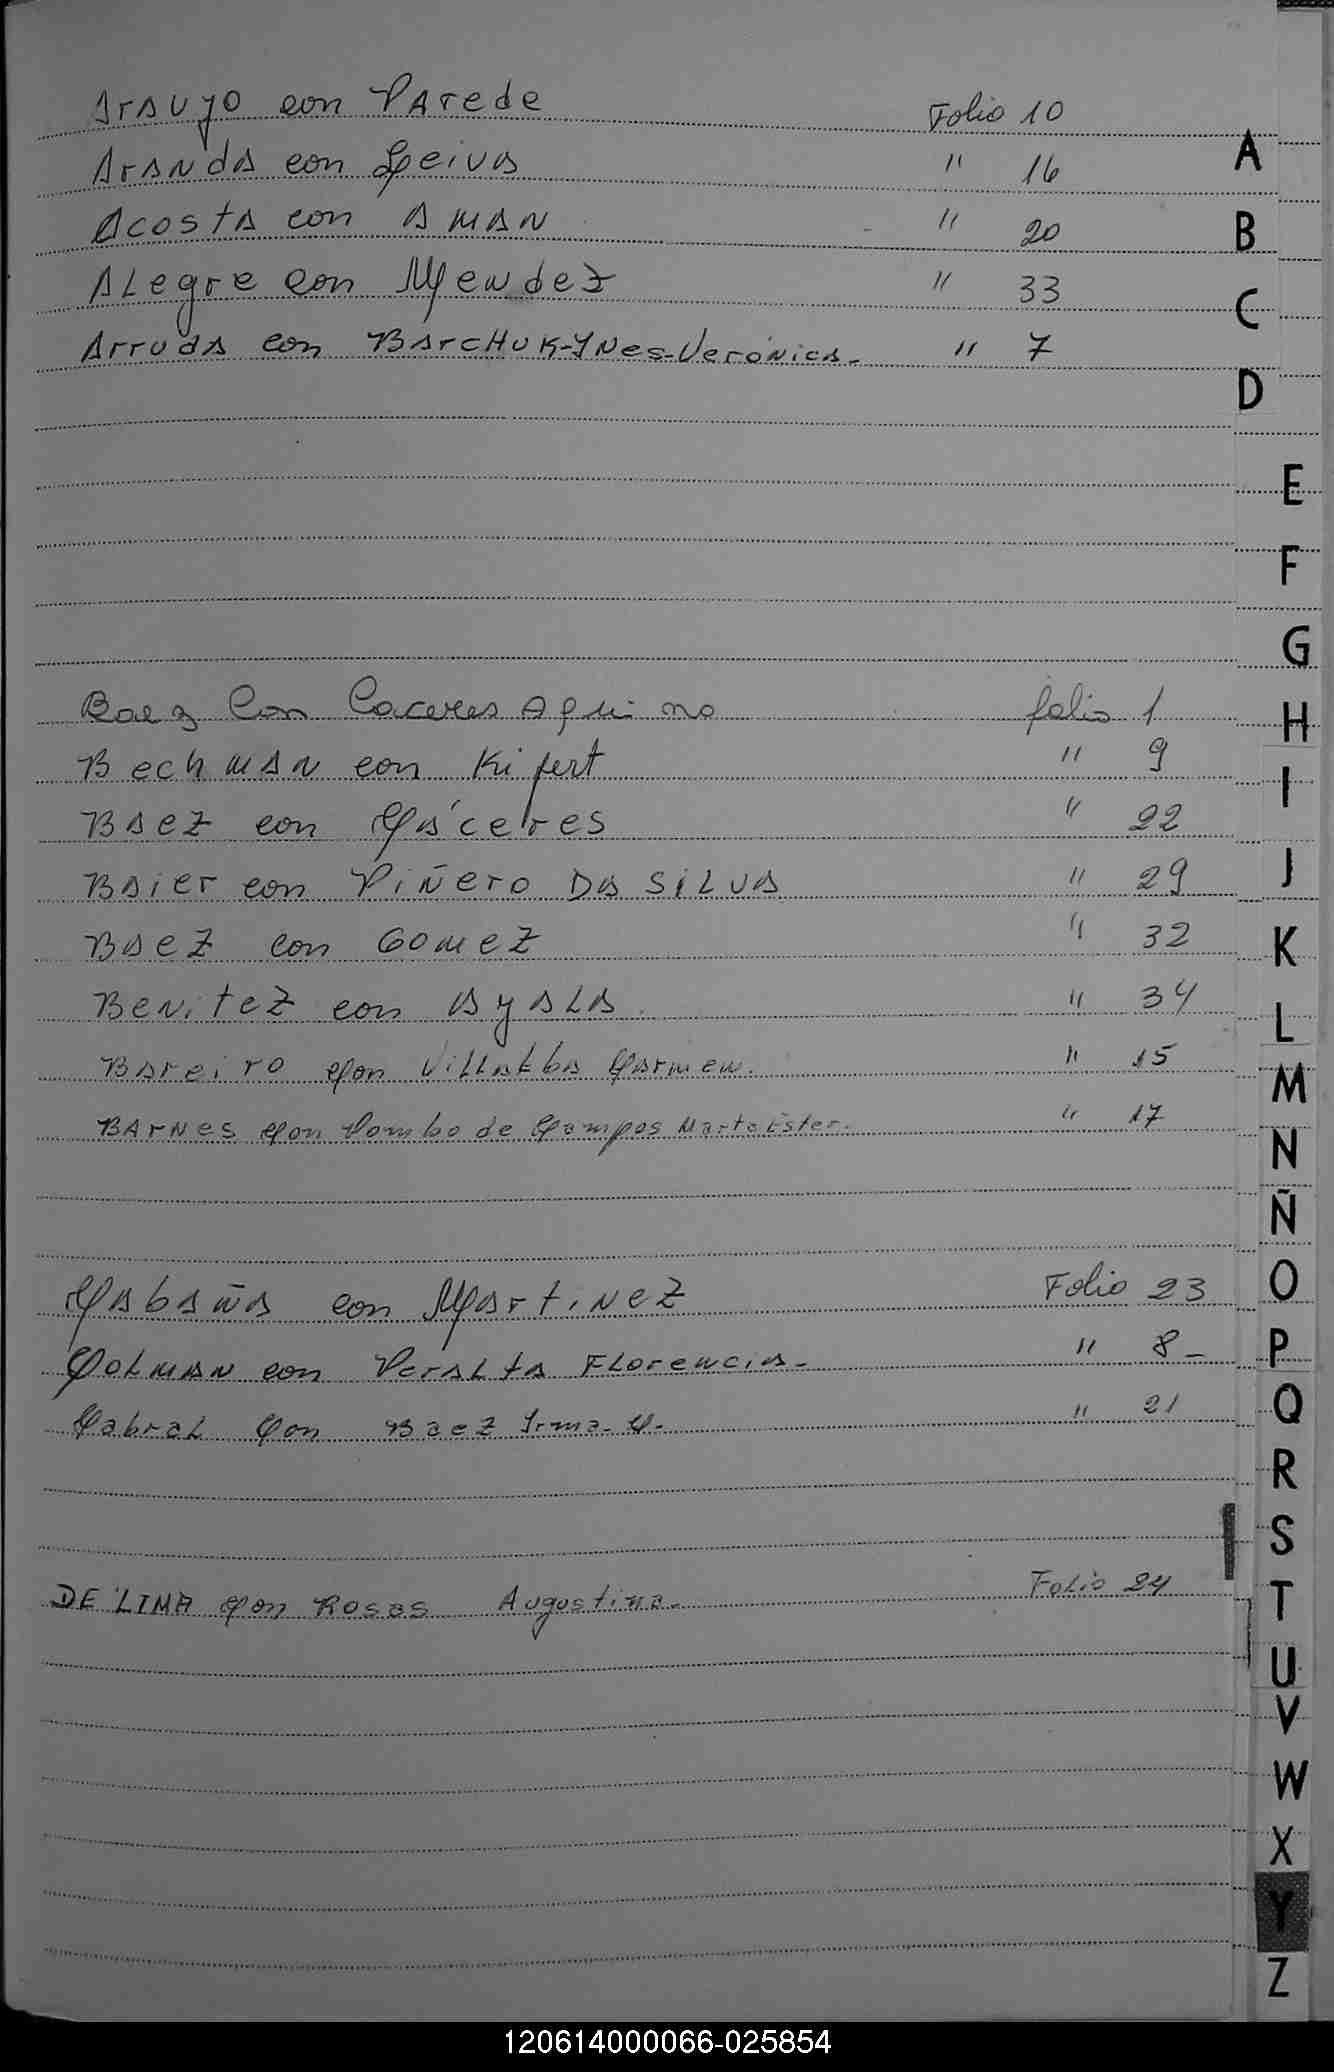 Araujo con Parede Folio 10
Aranda con Leiva " 16
Acosta con Aman " 20
Alegre con Mendez " 33
Arruda con Barchuk-Ynes-Veronica- " 7
Baez Con Caceres Aquino folio 1
Bechman con Kifert " 9
Baez con Cáceres " 22
Baier con Piñero Da Silva " 29
Baez con Gomez " 32
Benitez con Ayala " 34
Bareiro Con Villalba Carmen. " 15
Barnes Con Pombo de Campos Marta Ester. " 17
Cabaña con Martinez Folio 23
Colman con Peralta Florencia- " 8-
Cabral Con Baez Irma-C- " 21
DE LIMA Con Rosas Augustina- Folio 24
A
B
C
D
E
F
G
H
I
J
K
L
M
N
Ñ
O
P
Q
R
S
T
U
V
W
X
Y
Z
120614000066-025854